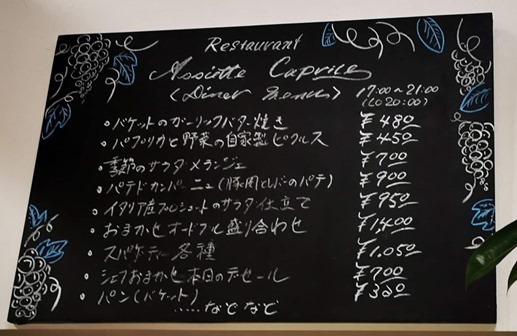 Restaurant
Assiette Caprice
<Diner menu> 17:00~21:00
(LO20:00)
・バケットのガーリックバター焼き ¥480
・パプリカと野菜の自家製ピクルス ¥450
季節のサラダメランジェ ¥700
・パテドカンパーニュ(豚肉とレバーのパテ) ¥900
・イタリア産プロシュートのサラダ仕立て ¥950
・おまかせオードブル盛り合わせ ¥1400
・スパゲティー各種 ¥1.050
・シェフおまかせ本日のデセール ¥700
・パン(バケット) ¥300
.....などなど